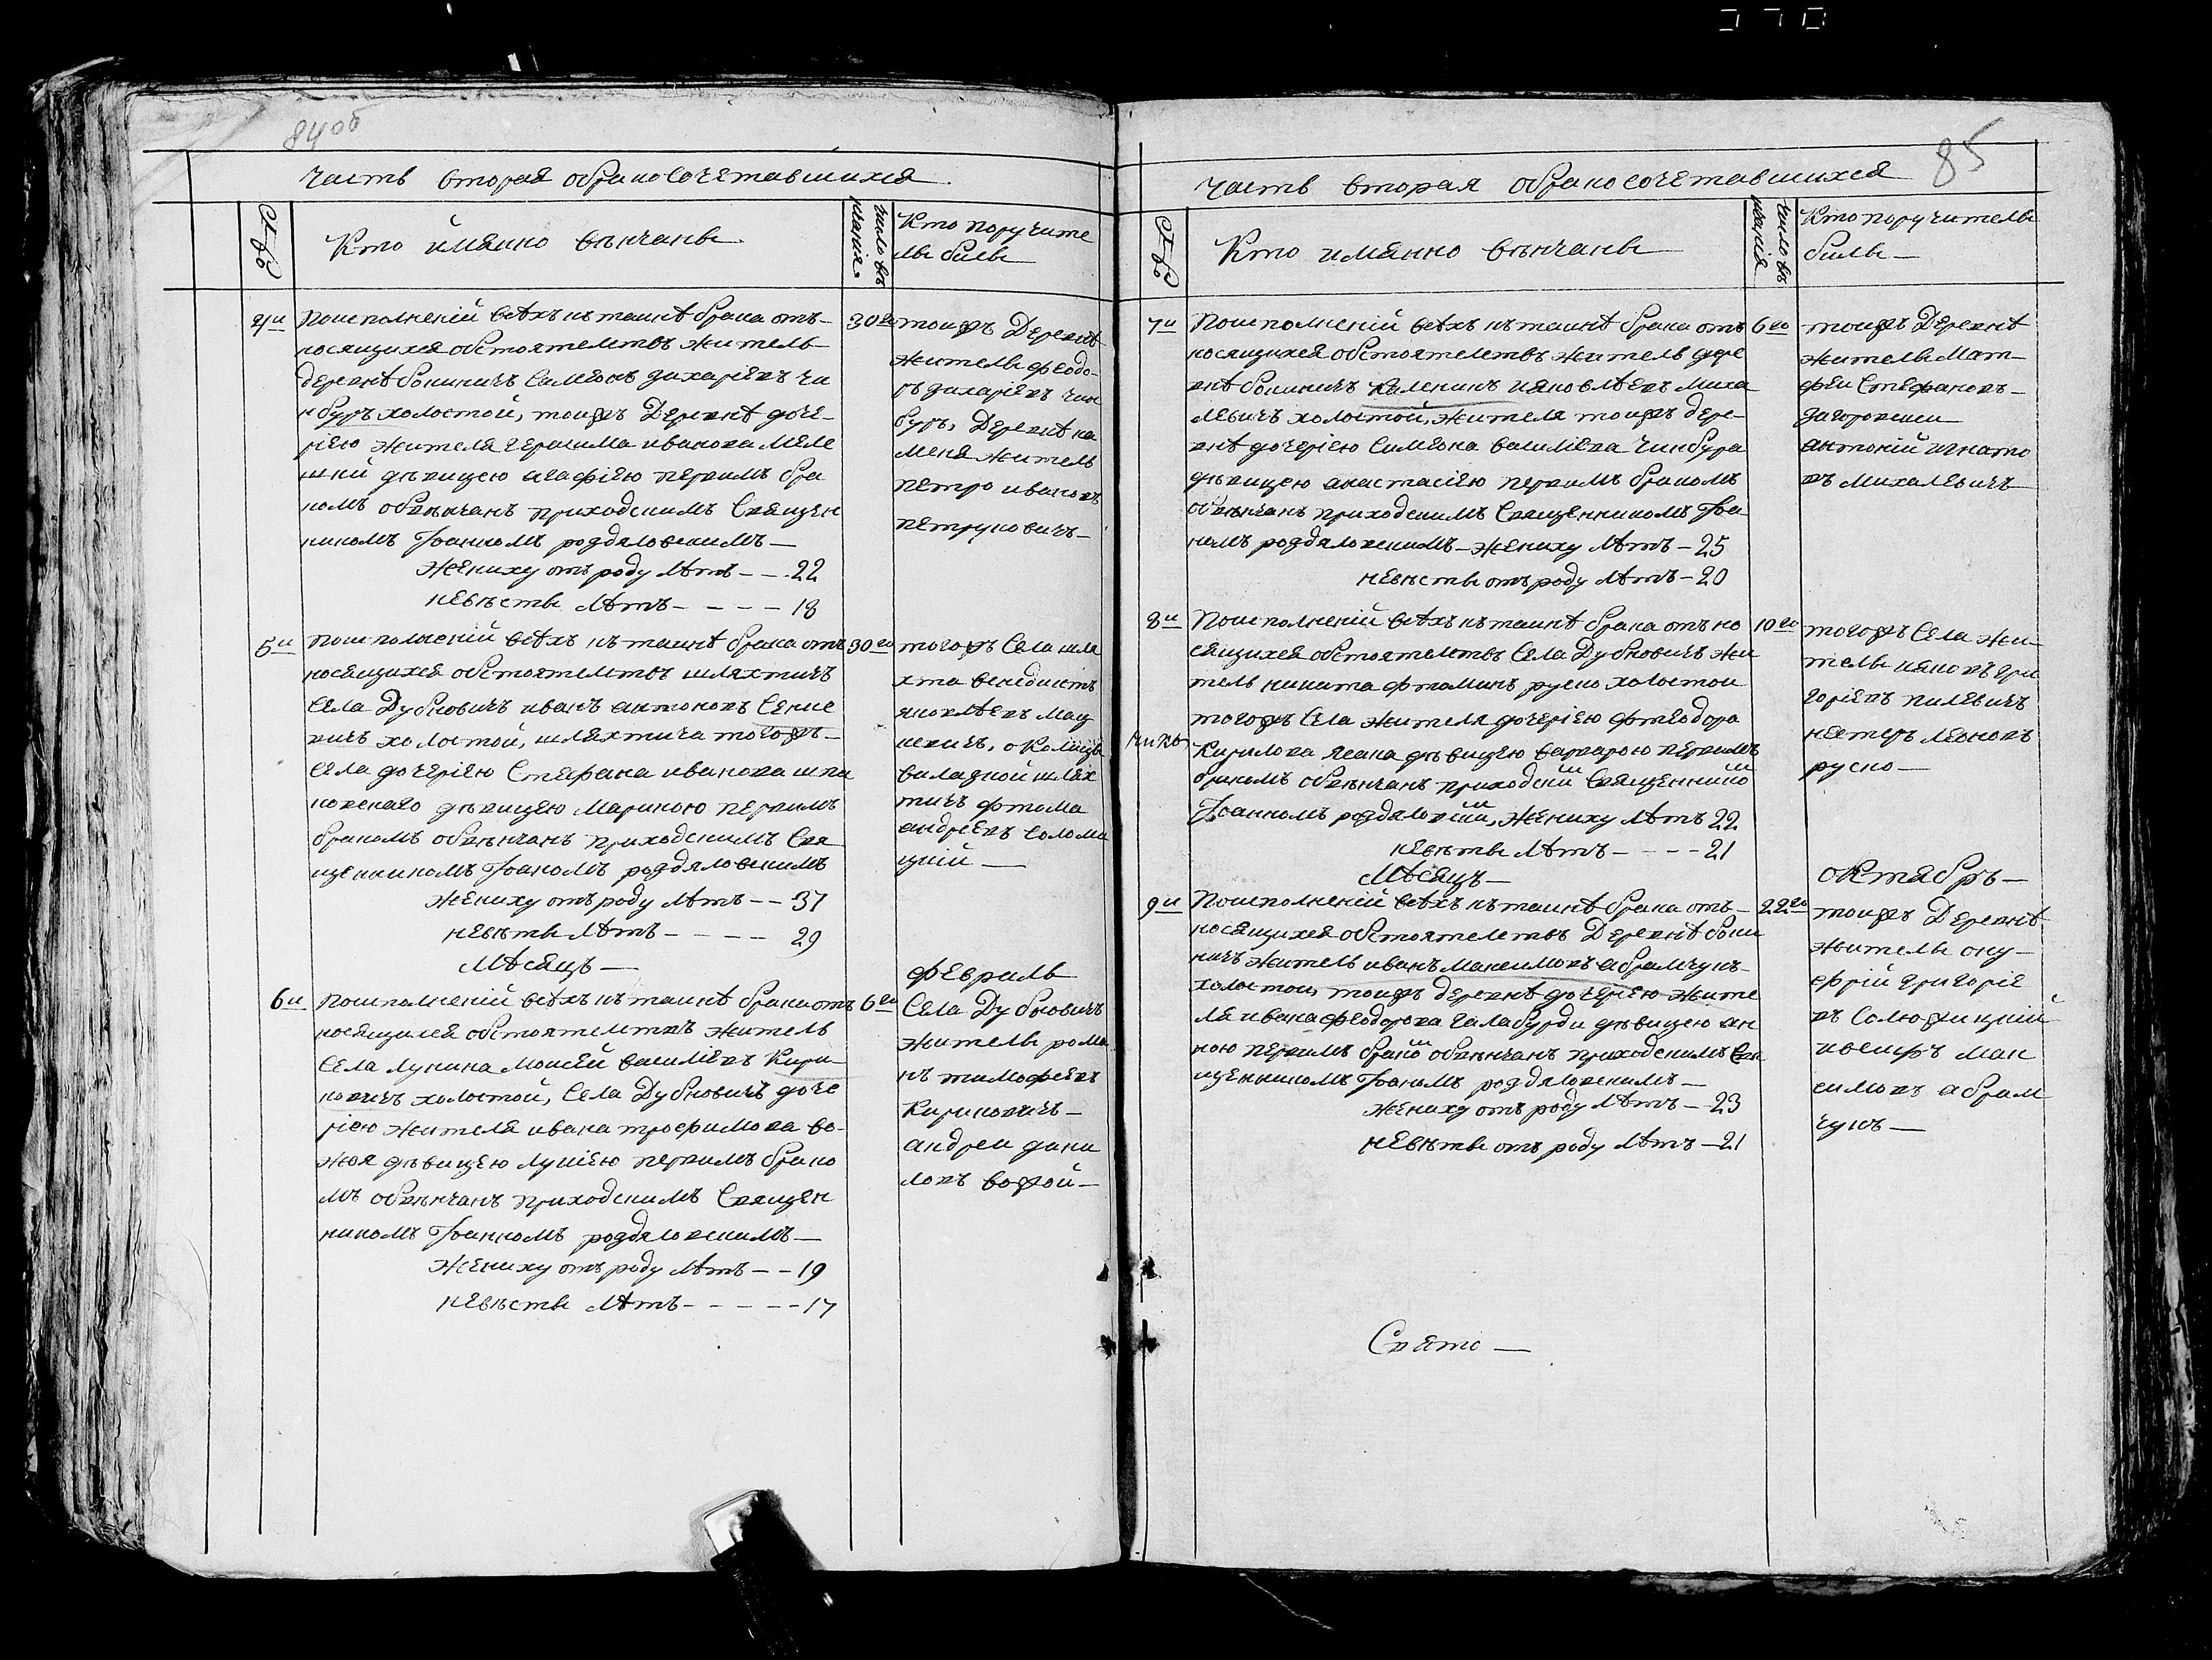 84 об
часть вторая обракосочетавшихся
Счбр
Кто имянно вѣнчаны
число вѣ
нчания
Кто поручите
лы былы
4и
Поисполненій всѣхъ къ таинѣ брака отъ-
носящихся обстоятелствъ житель
деревнѣ боничъ Самеонъ захаріевъ чи
нбуръ холостой, тоижъ Деревнѣ доче-
рiею жителя герасима иванова меле
шкй дѣвицею агафіею первимъ бра
комъ обвѣнчанъ приходскимъ Священ
никомъ Іоанномъ роздяловскимъ —
жениху отъ роду лѣтъ — — 22
невѣсты лѣтъ — — — — 18
30го
тоижъ Деревнѣ
жителы феодо-
ръ захаріевъ чин
буръ, Деревнѣ ка
меня житель
петро ивановъ
петруковичъ —
5и
Поисполненій всѣхъ къ таинѣ брака отъ
носящихся обстоятелствъ шляхтичъ
Села Дубновичъ иванъ антоновъ Сение
вичъ холостой, шляхтича тогожъ —
Села дочеріею Стефана иванова шпа
ковскаго дѣвицею Мариною первимъ
бракомъ обвѣнчанъ приходскимъ Свя
щенникомъ Іоаномъ роздяловскимъ
жениху отъ роду лѣтъ — — 37
невѣсты лѣтъ — — — — 29
30го
тогожъ Села шля
хта венедиктъ
яковлѣвъ мац
кевичъ, околицы
виладной шлях
тичъ фтома
андреевъ солома
цкій —
Мѣсяцъ —
февраль
6и
Поисполненій всѣхъ къ таинѣ брака отъ
носящихся обстоятелствъ житель
Села лунина Моисей василіевъ Кири-
ковичъ холостой, Села Дубновичъ доче
ріею жителя ивана трофимова во-
жоя дѣвицею лукіею первимъ брако
мъ обвѣнчанъ приходскимъ Священ
никомъ Іоанномъ роздяловскимъ —
жениху отъ роду лѣтъ — — 19
невѣсты лѣтъ — — — — — 17
6го
Села Дубновичъ
жителы рома
нъ тимофеевъ
Кириковичъ —
андреи дани
ловъ вожой —
85
часть вторая обракосочетавшихся
Счбр
Кто имянно вѣнчаны
число вѣ
нчанія
Кто поручителы
былы —
7и
Поисполненій всѣхъ къ таинѣ брака отъ
носящихся обстоятелствъ житель дере
внѣ боничъ каленикъ яковлѣвъ миха
левичъ холостой, жителя тоижъ дере-
внѣ дочеріею Симеона василіева чинбура
дѣвицею анастасіею первимъ бракомъ
обвѣнчанъ приходскимъ Священникомъ Іоа
номъ роздяловскимъ — жениху лѣтъ — 25
невѣсты отъ роду лѣтъ — 20
6го
тоижъ Деревнѣ
жителы Мат-
феи Стефановъ —
загоровски
антоній игнато
въ михалевичъ
8и
Поисполненій всѣхъ къ таинѣ брака отъ но
сящихся обстоятелствъ Села Дубновичъ жи
тель никита фтоминъ руско холостои
тогожъ Села жителя дочеріею фтеодора
Кирилова ясана дѣвицею варварою первимъ
бракомъ обвѣнчанъ приходскім Священником
Іоанномъ роздяловским, жениху лѣтъ 22
невѣсты лѣтъ — — — — 21
10го
тогожъ Села жи-
телы яковъ гри
горіевъ пилевичъ
нестеръ леоновъ
руско —
Мѣсяцъ —
октябръ —
9и
Поисполненій всѣхъ къ таинѣ брака отъ —
носящихся обстоятелствъ Деревнѣ бони
ничъ житель иванъ максимовъ абрамчукъ —
холостои, тоижъ деревнѣ дочеріею жите
ля ивана феодорова галабурди дѣвицею ан
ною первимъ браком обвѣнчанъ приходскимъ Свя
щенникомъ Іоаномъ роздяловскимъ —
жениху отъ роду лѣтъ — 23
невѣсты отъ роду лѣтъ — 21
22го
тоижъ Деревнѣ
жителы ону-
фрій григоріе
въ Солюжицкій
иосифъ мак
симовъ абрам
чукъ —
Свято —